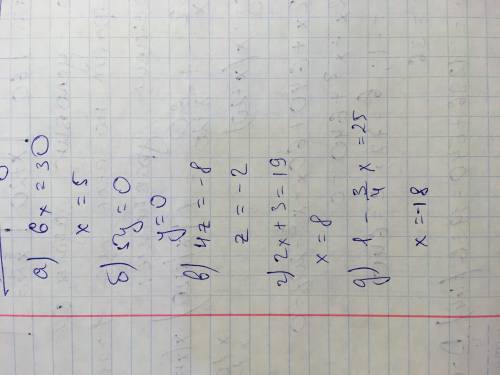 а) 6x = 30
x = 5
б) 5y = 0
y = 0
в) 4z = -8
z = -2
г) 2x + 3 = 19
x = 8
д) 1 - 3/4 x = 25
x = -18